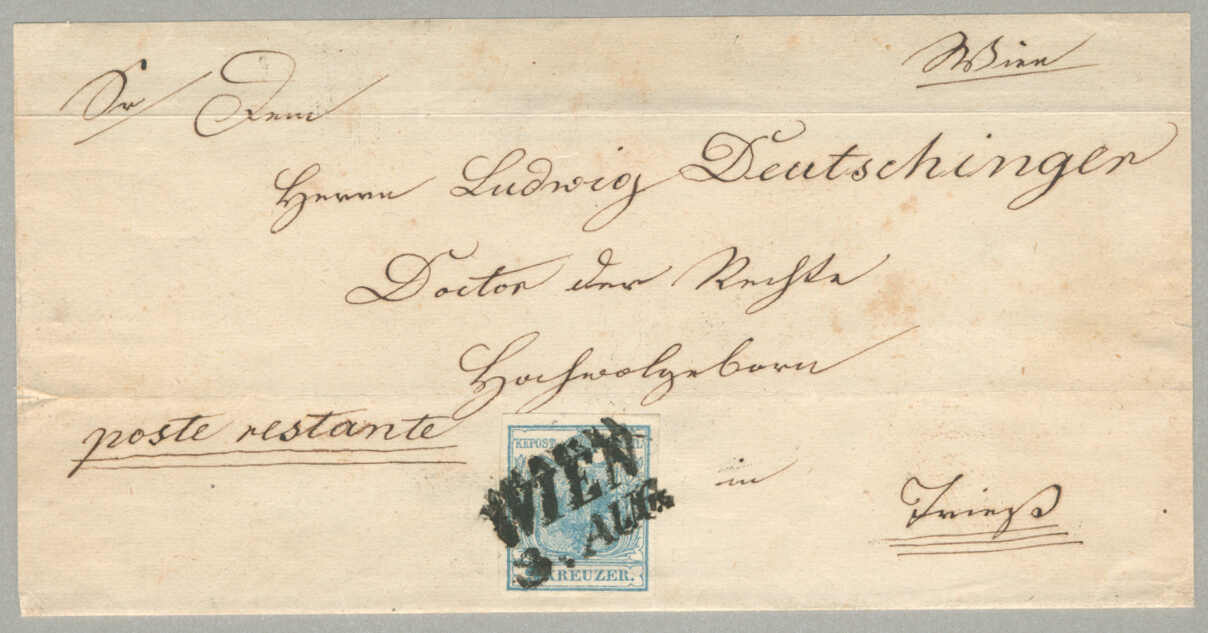 Wien
Sr Dem
Herrn Ludwig Deutschinger
Doctor der Rechte
Hochwolgeborn
poste restante
KKPOST
WIEN
3. AUG.
KREUZER.
in
Triest